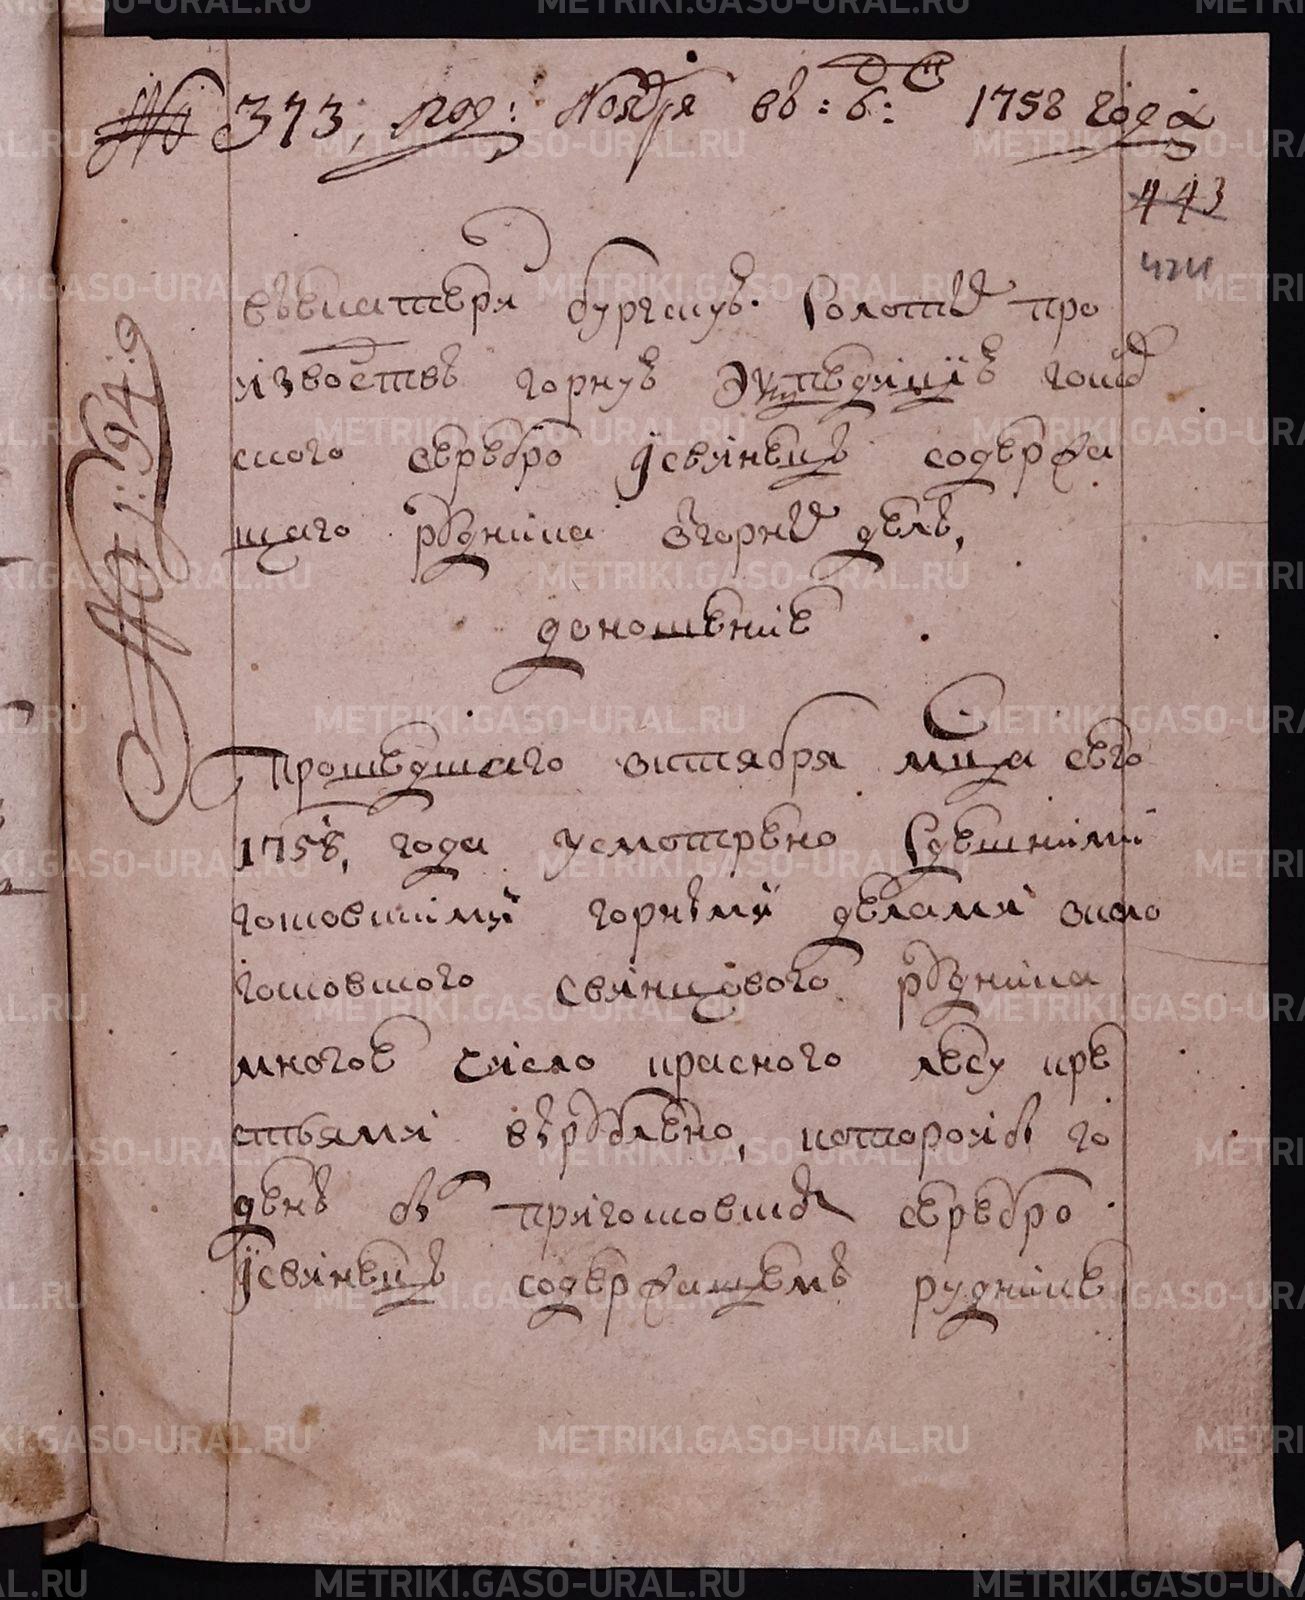 № 373, под: Ноября 6: д 1758 года
443
424
№ 1: 94:
въ екатеринбургскую золотыхъ про
изводствъ горную экспедицию гошъ
ского серебро и свинецъ содержа
щаго рудника з горныхъ делъ,
доношение
Прошедшаго октября мца сего
1758, года усмотрено здешними
гошовскими горными делами около
гошовского свинцового рудника
многое число красного лесу кре
стьями вырублено, которой бы го
денъ бы при гошовскомъ серебро
и свинецъ содержащемъ руднике
METRIKI.GASO-URAL.RU